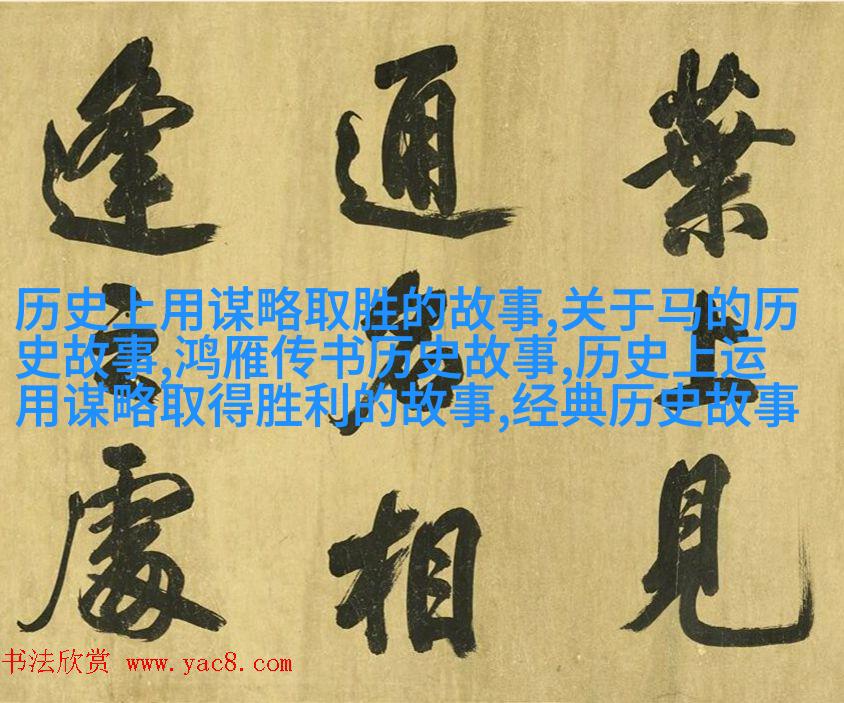 葉上見
通名相
逢處
历史上用谋略取胜的故事,关于马的历
史故事,鸿雁传书历史故事,历史上运
用谋略取得胜利的故事,经典历史故事
书法欣赏 www.yac8.com